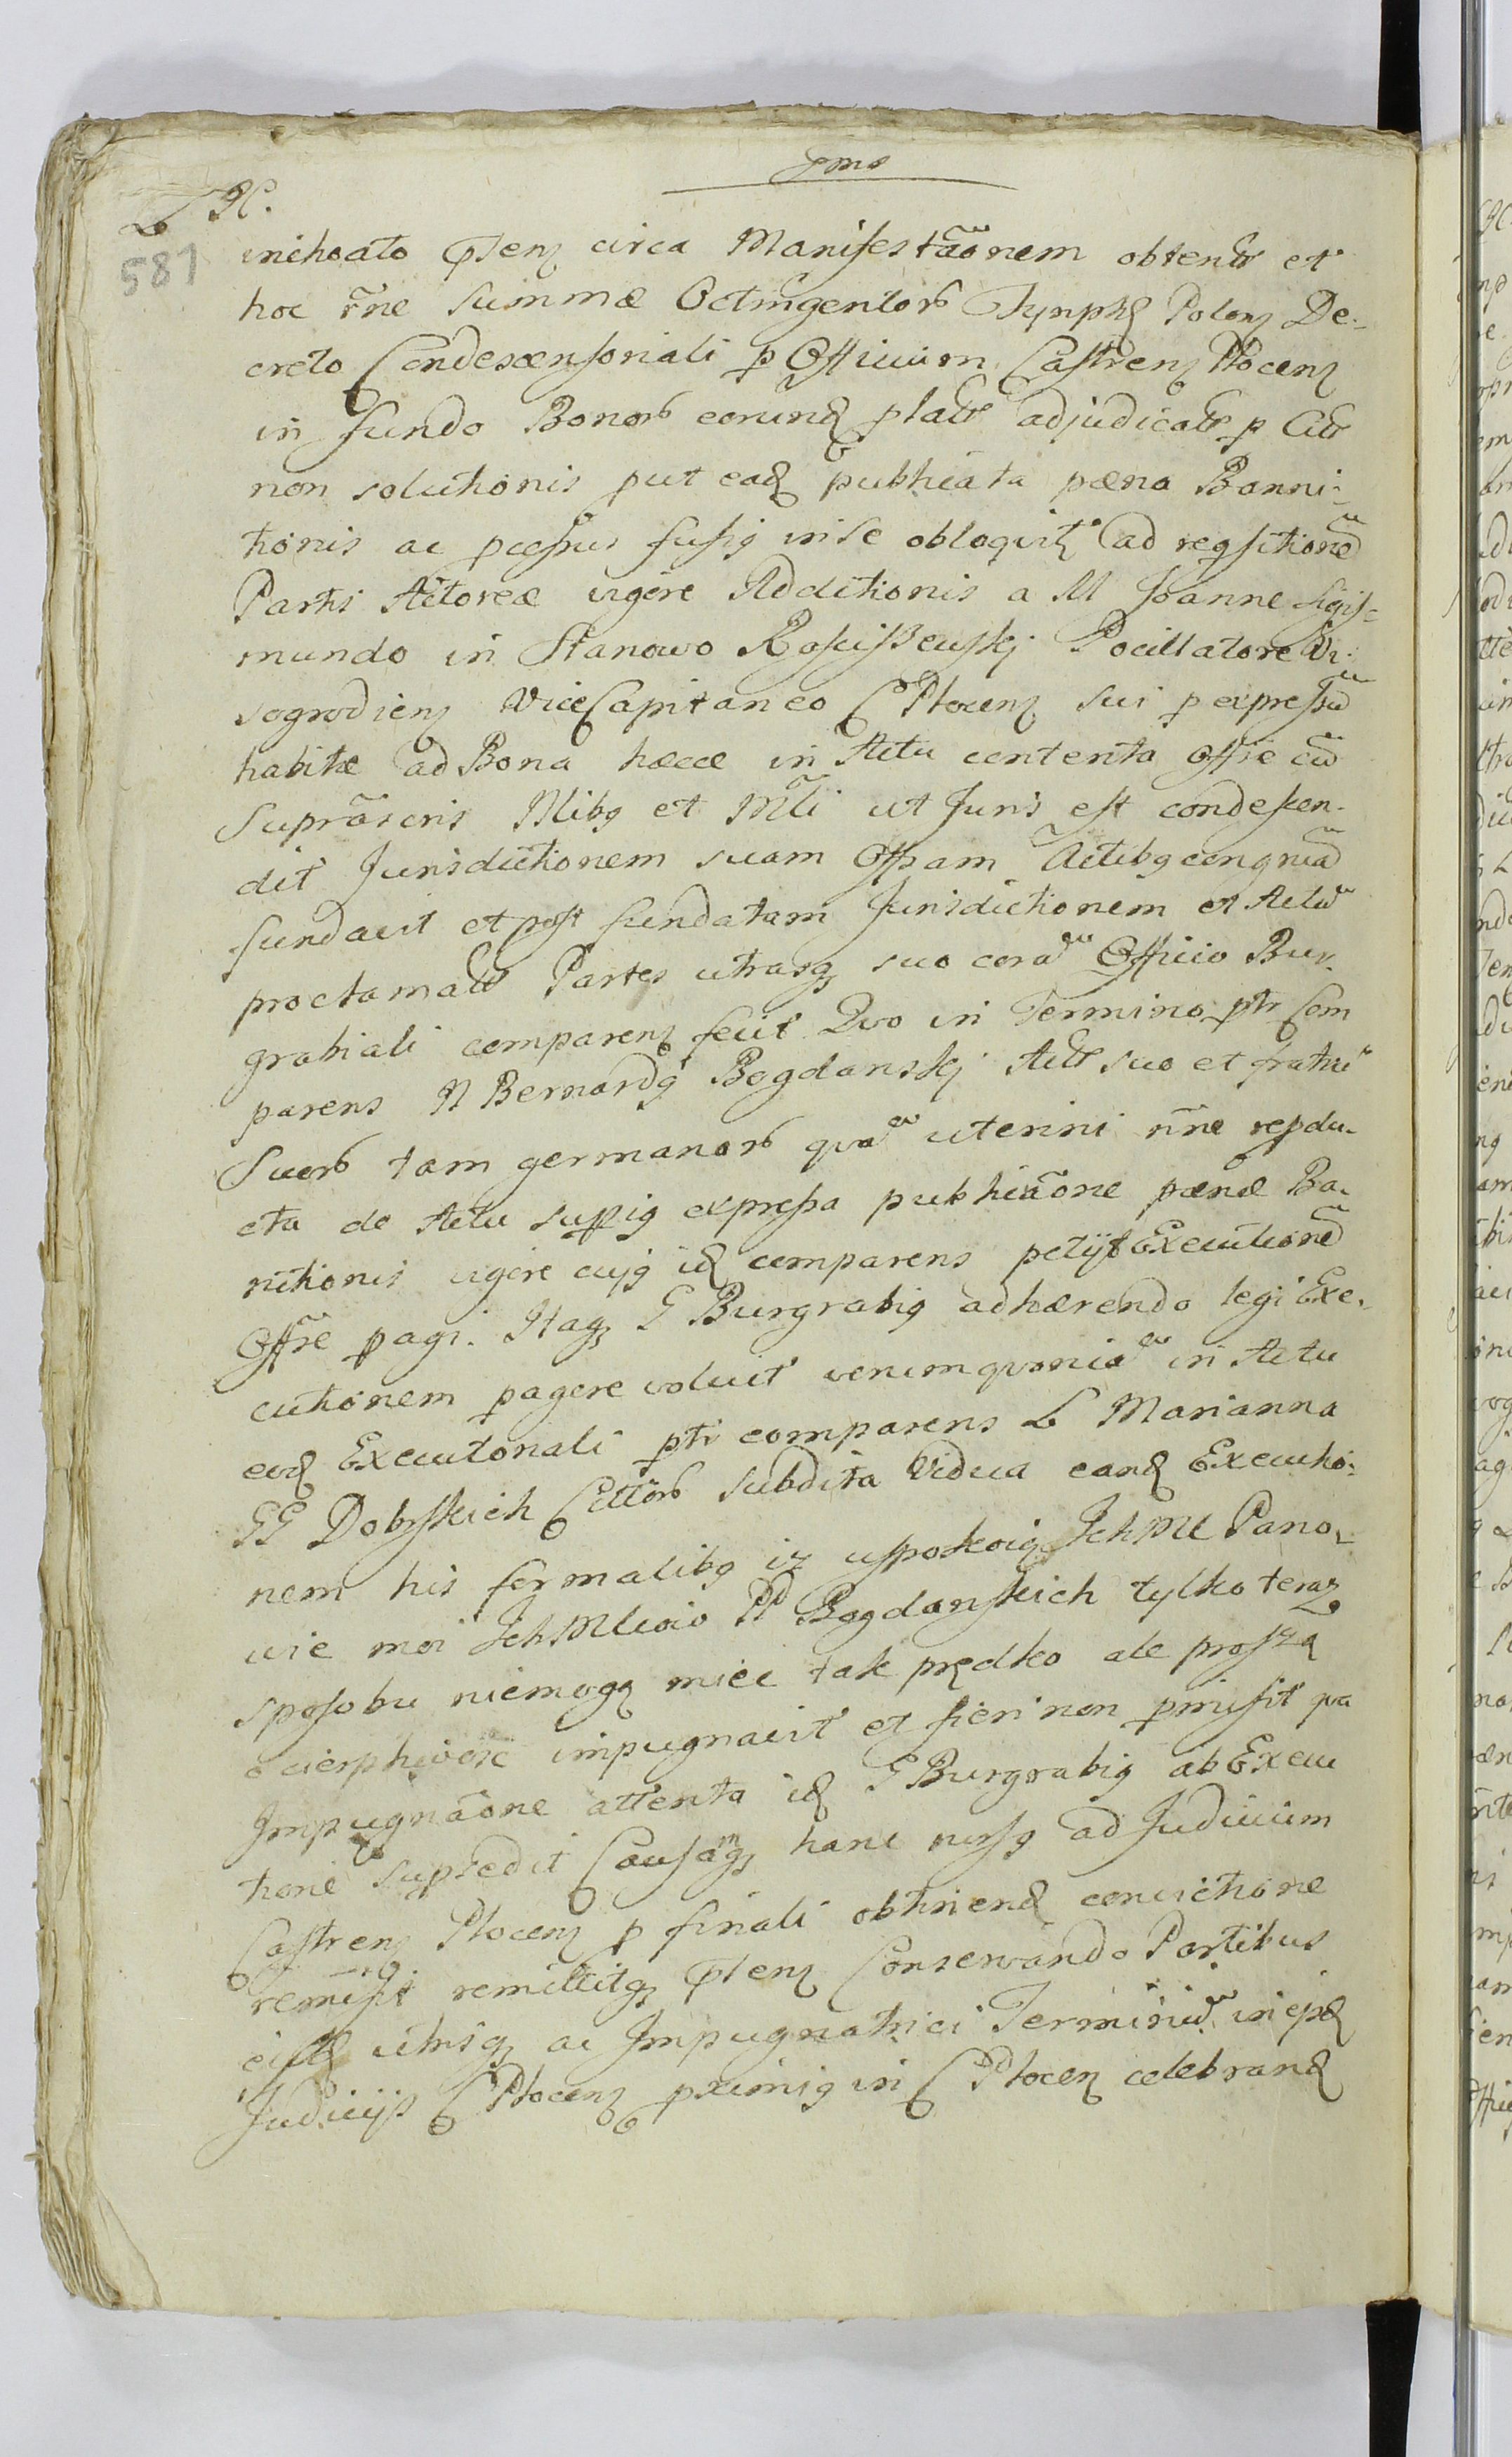 N.
581
inchoato Pten circa Manifestãonem obtent et
hoc rñe summæ Octingentor Tynph Polon De-
creto Condescensoriali p Officium Castren Plocen
in fundo Bonor eorund plati adjudicat p
non solutionis put ead publicata pœna Banni-
tionis ac pcessus fusig in se obloquit ad reqsitionẽ
Partis Actoreæ vigore Additionis a M Joanne Sigis-
mundo in Stanowo Rosciszewskj Pocillatore Wi-
sogrodien ViceCapitaneo C Plocen sui p expressũ
habitæ ad Bona hæcce in Actu contenta Offie cũ
Suprascris Nlibg et Mtli ut Juris est condescen-
dit Jurisdictionem suam Offam Actibg congruã
fundavit et post fundatam Jurisdictionem et Actũ
proclamatt Partes utrasq suo corã Officio Bur-
grabiali comparen fecit Quo in Termino ptr Com
parens N Bernardg Bogdanskj Act suo et fratrũ
Suor tam germanor quã uterini nñe repdu-
cta de Actu supig expressa publicãone pœnæ Ba-
nitionis vigore cujg id comparens petijt Executionẽ
Offie pagi. Itaq G Burgrabig adhærendo legi Exe-
cutionem pagere voluit verum quoniã in Actu
eod Executoriali ptr comparens L Marianna
GG Dobrskich Cittor subdita Vidua eand Executio-
nem his formalibg iz uspokoią Ich Mc Pano-
wie moi IchMciow PP Bogdanskich tylko teraz
sposobu niemogą miec tak prędko ale proszą
o cierpliwosc impugnavit et fieri non pmisit qva
Impugnãone attenta id G Burgrabig ab Execu
tione supsedit Causãmq hanc rursg ad Judicium
Castren Plocen p finali obtinend convictione
remisit remittitq Pten Conservando Partibus
eisd utrisq ac Impugnatrici Terminũ in ejsd
Judicijs C Plocen pximig in C Plocen celebrand